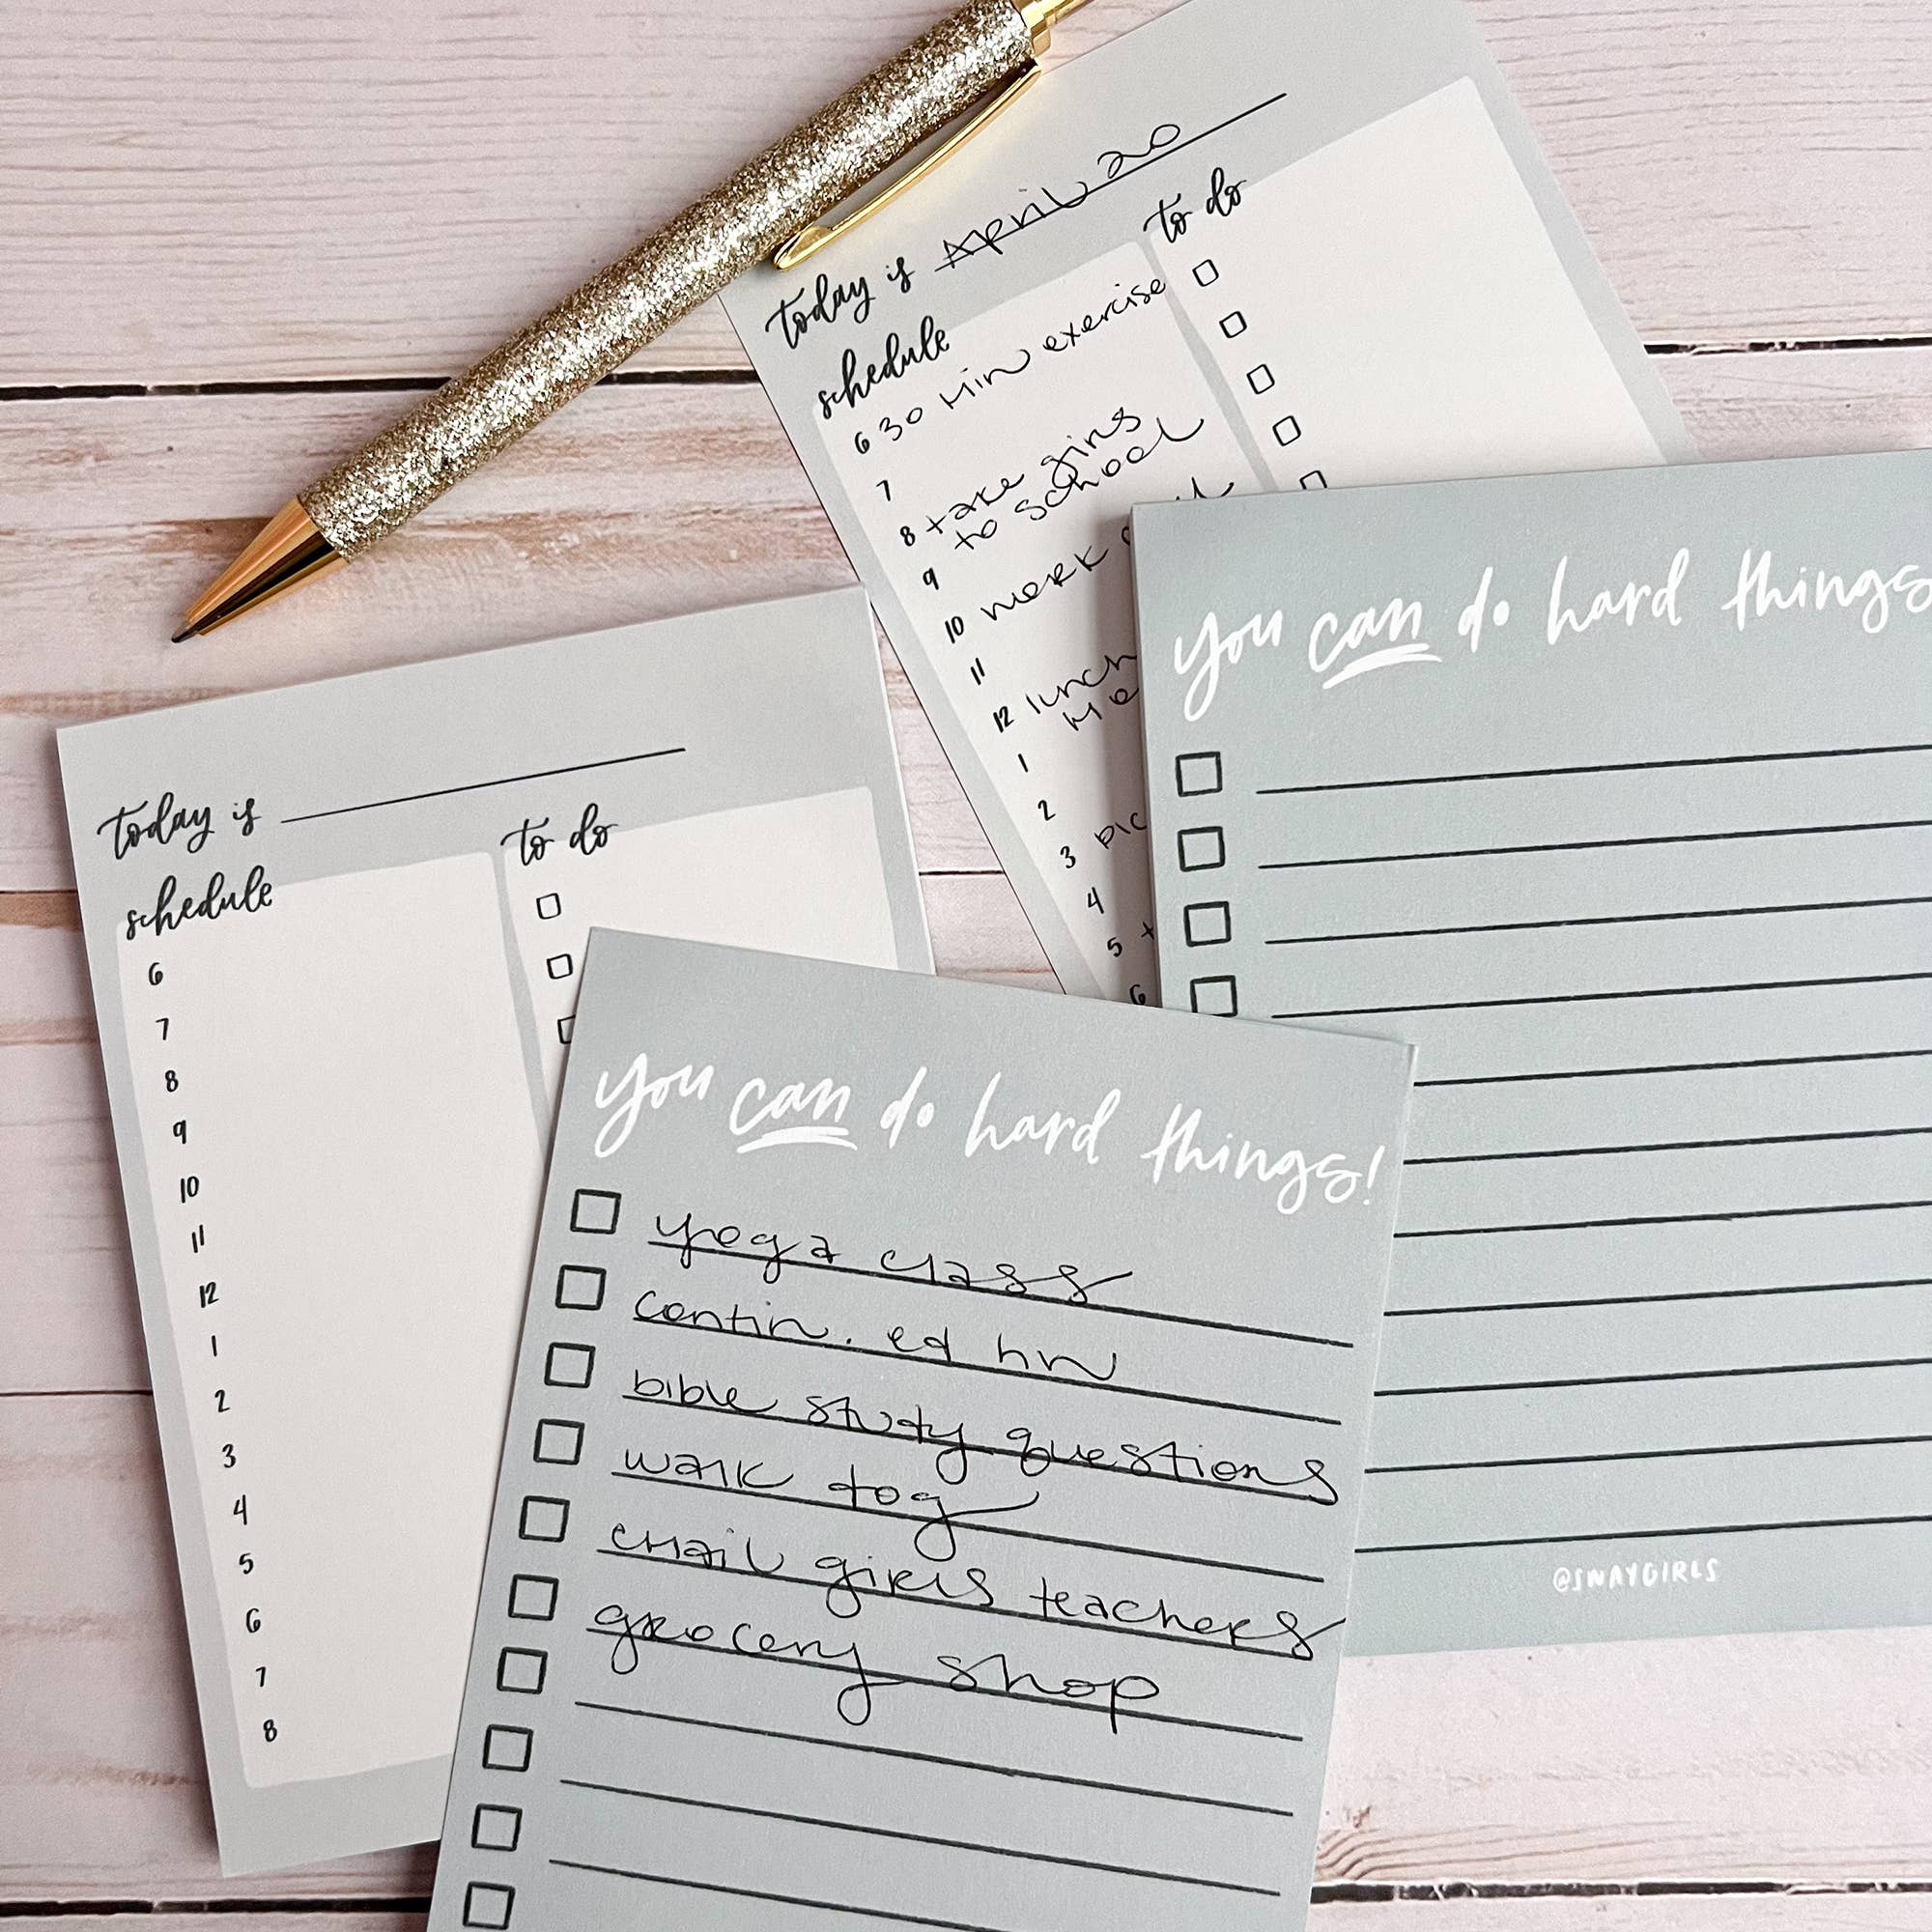 today is April 20
schedule
to do
6 30 min exercise
7
8 take girls
to school
9
10 work
11
12 lunch
1
2
3
4
5
6
you can do hard things
@SWAYGIRLS
today is
schedule
to do
6
7
8
9
10
11
12
1
2
3
4
5
6
7
8
you can do hard things!
yoga class
contin. ed hw
bible study questions
walk dog
email girls teachers
grocery shop